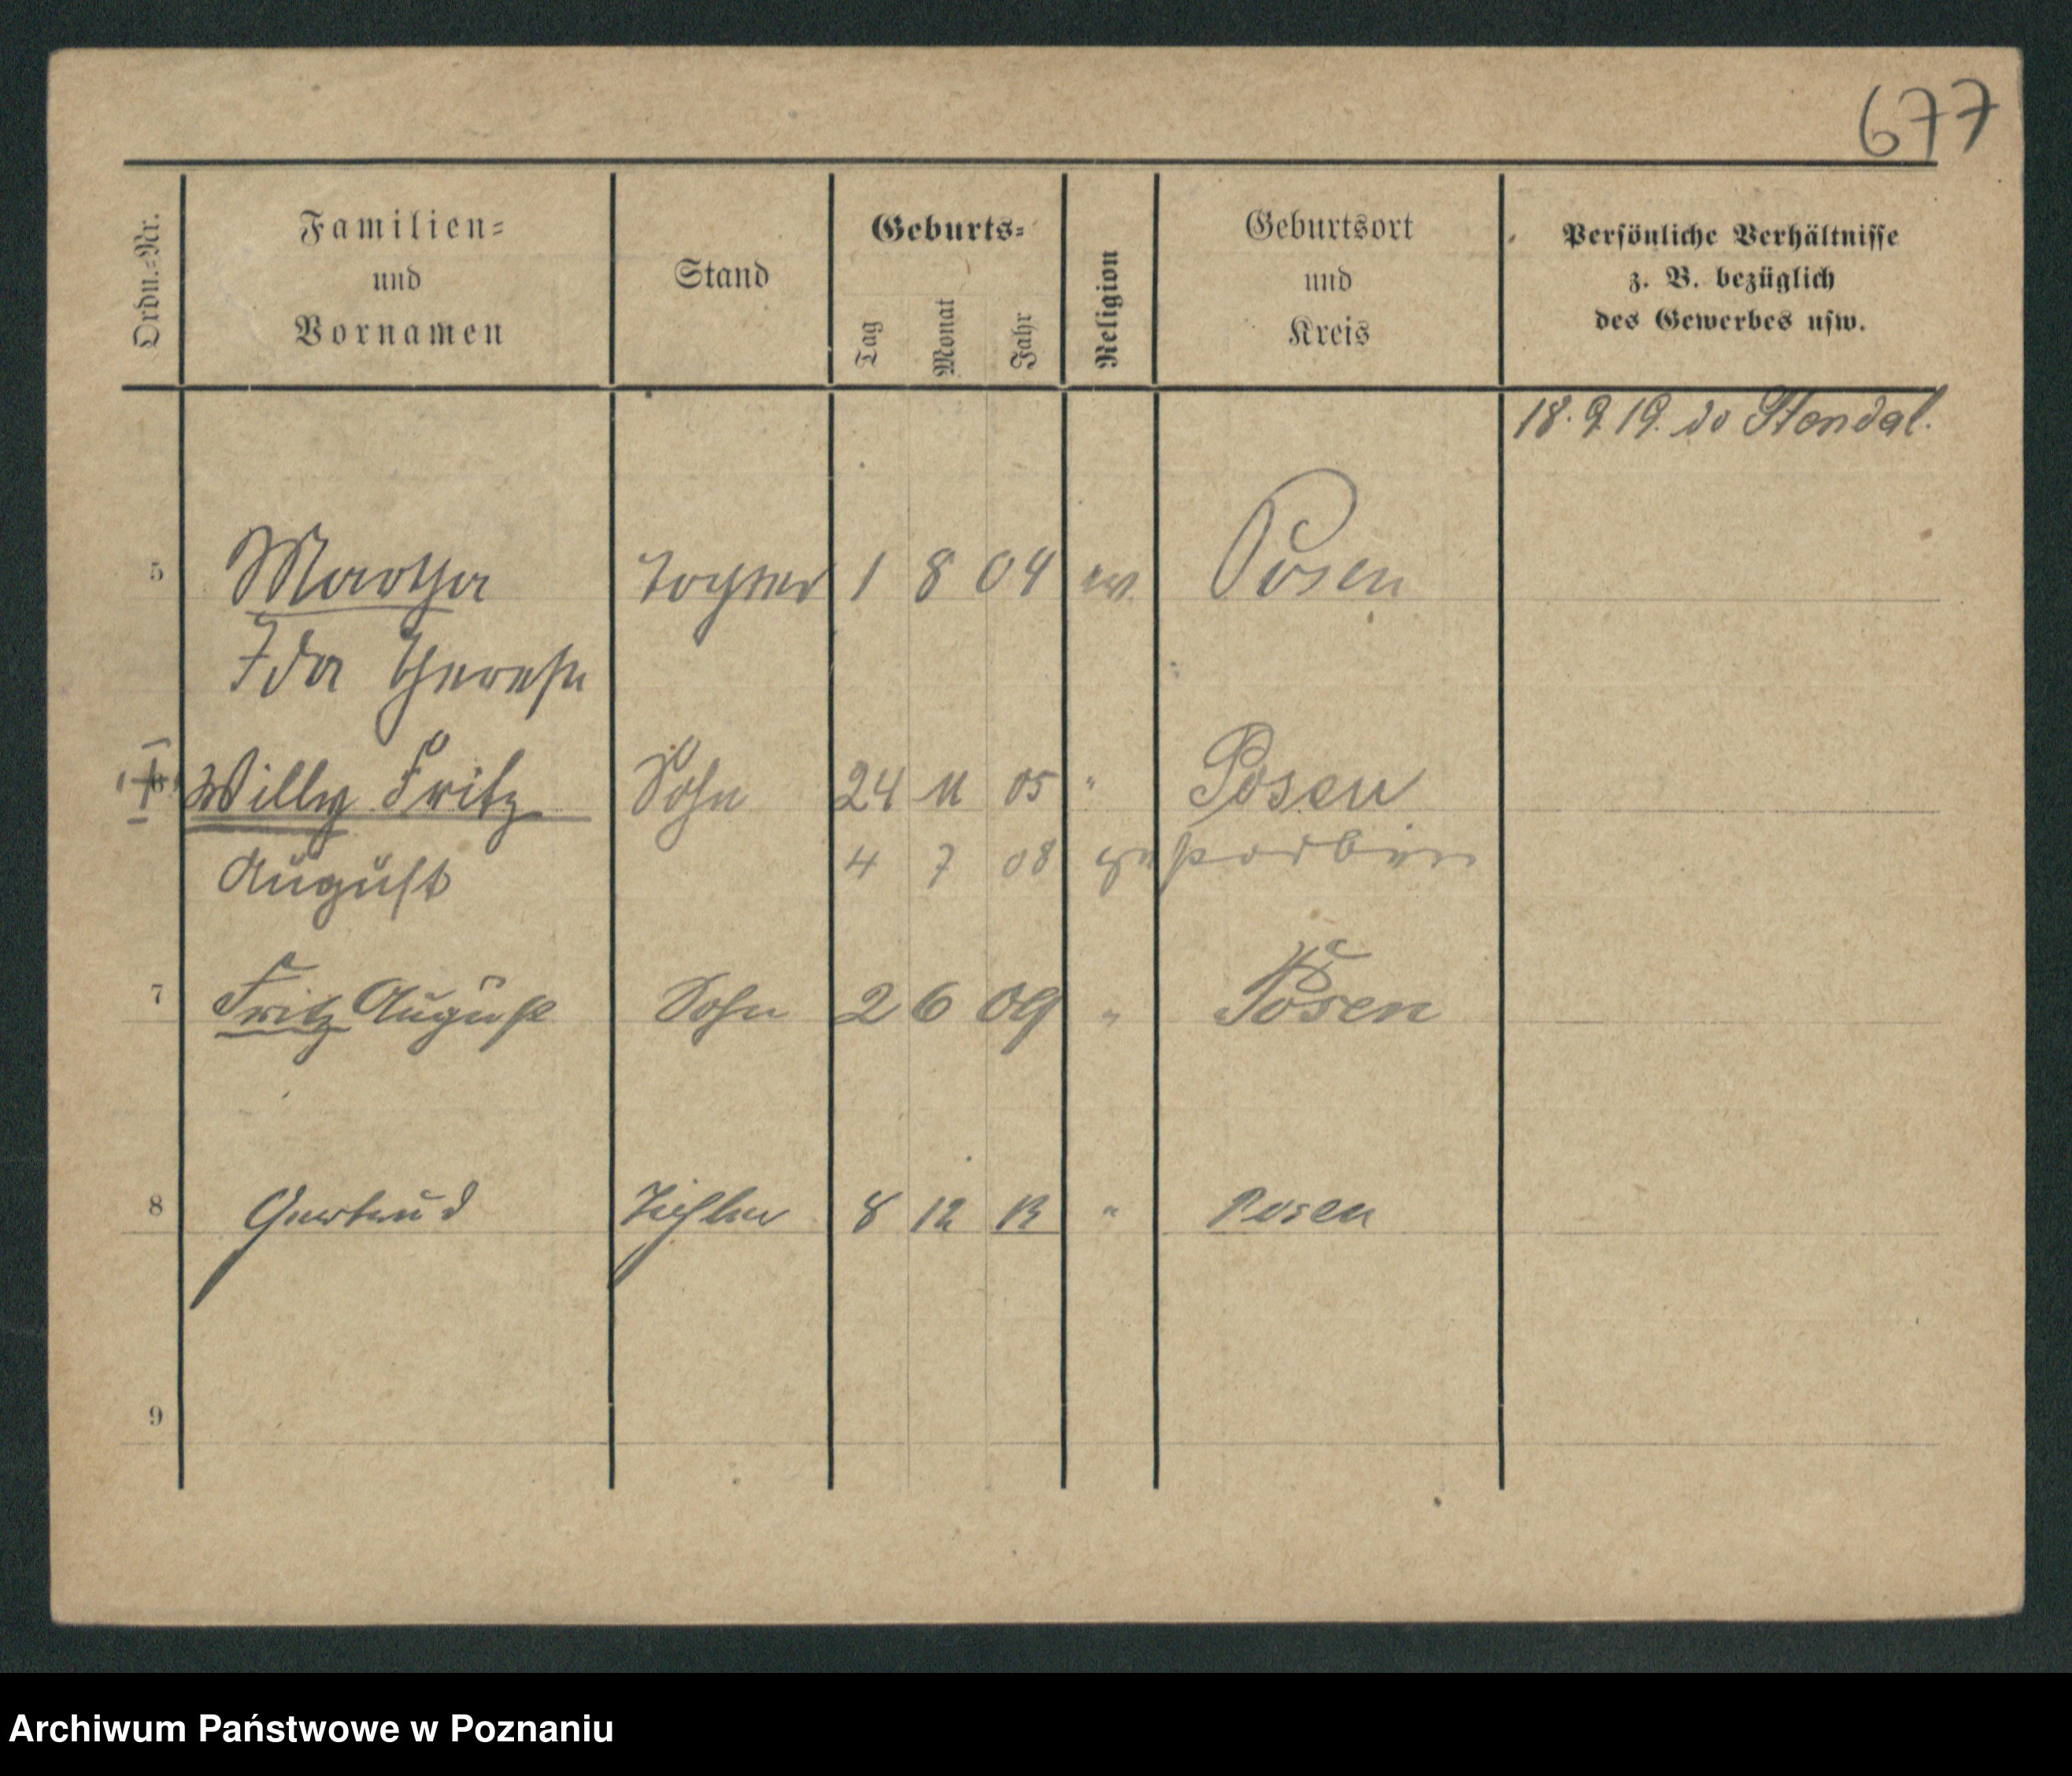 677
Ordn.-Nr.
Familien-
und
Vornamen
Stand
Geburts-
Tag
Monat
Jahr
Religion
Geburtsort
und
Kreis
Persönliche Verhältnisse
z. B. bezüglich
des Gewerbes usw.
18.9.19. do Stendal.
5 Martha Tochter 1 8 04 ev. Posen
Ida Therese
6 Willy Fritz Sohn 24 11 05 " Posen
August 4 7 08 gestorben
7 Fritz August Sohn 2 6 09 " Posen
8 Gertrud Tochter 8 12 13 " Posen
9
Archiwum Państwowe w Poznaniu